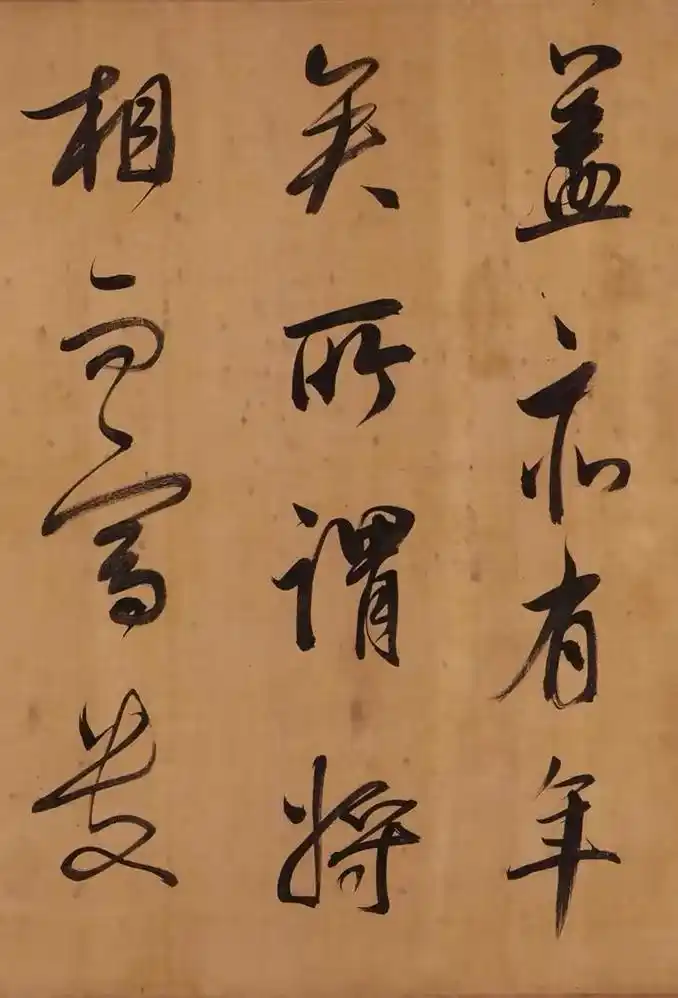 蓋亦有年
矣所謂將
相而富貴